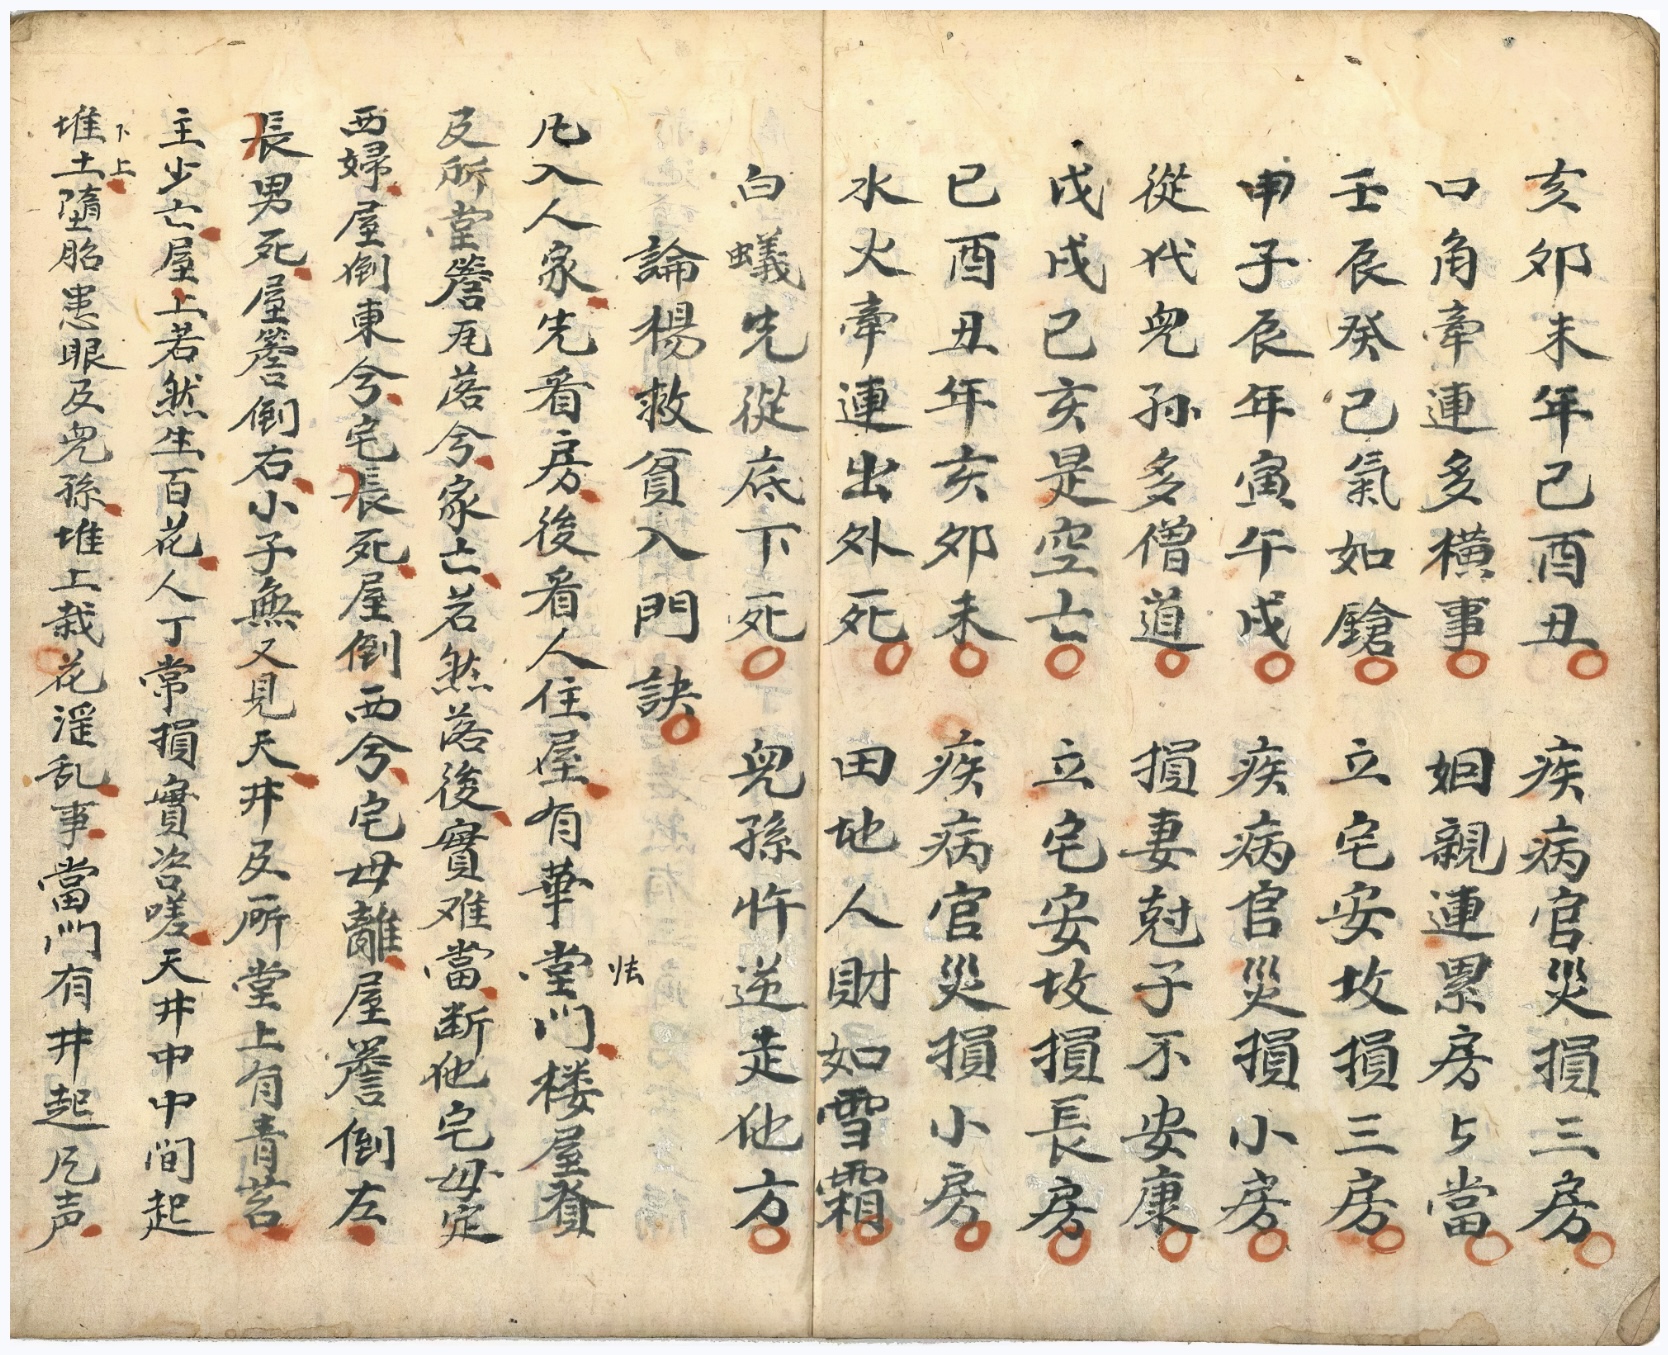 亥卯未年己酉丑　疾病官災損三房
口角牽連多橫事　姻親連累房与當
壬辰癸己氣如鎗　立宅安坟損三房
申子辰年寅午戌　疾病官災損小房
從代兒孫多僧道　損妻尅子不安康
戊戌己亥是空亡　立宅安坟損長房
已酉丑年亥卯未　疾病官災損小房
水火牽連出外死　田地人財如雪霜
白蟻先從底下死　兒孫忤逆走他方
論楊救貧入門訣
凡入人家先看房後看人住屋有華堂門楼屋脊
怯
及所堂簷瓦落兮家亡若然落後實难當断他宅母定
西婦屋倒東兮宅長死屋倒西兮宅母離屋簷倒左
長男死屋簷倒右小子無又見天井及所堂上有青苔
主少亡屋上若然生百花人丁常損實咨嗟天井中中間起
下上
堆土墮胎患眼及兒孫堆上栽花滛乱事當門有井起凡声